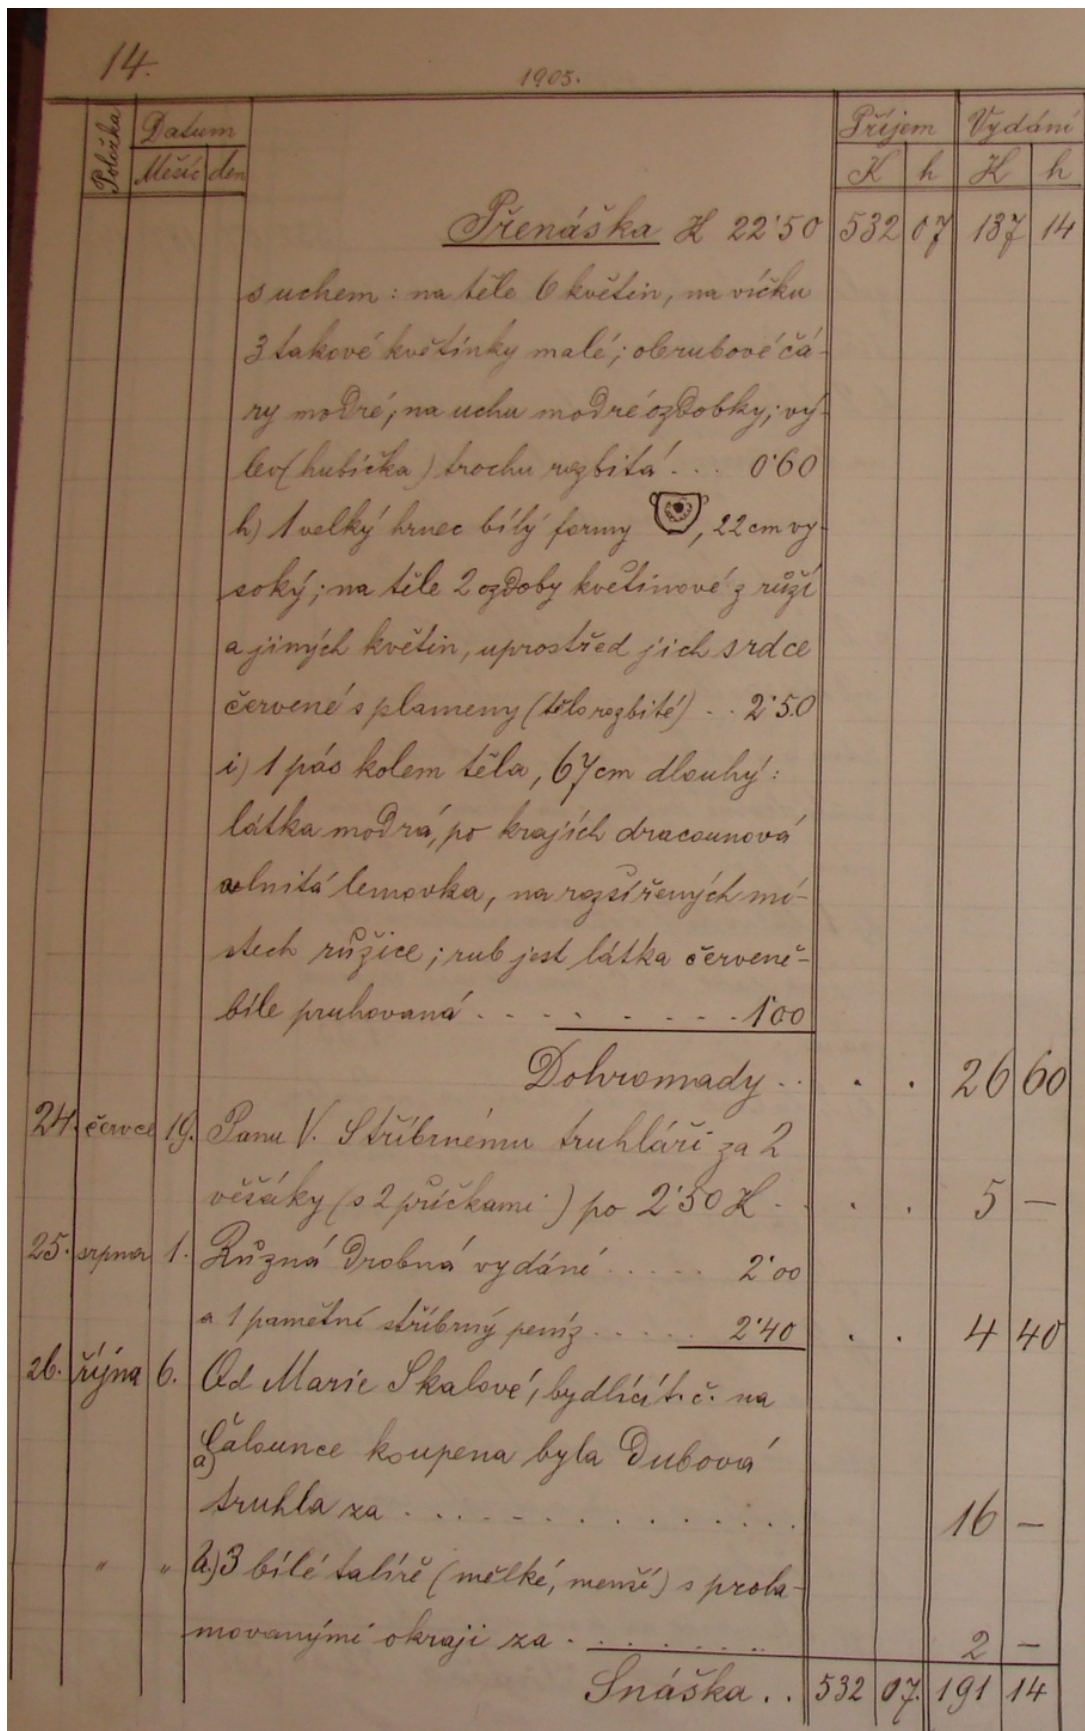 14.
1905.
Položka Datum Příjem Vydání
Měsíc den K h K h
Přenáška K 22˙50 532 07 137 14
s uchem: na těle 6 květin, na víčku
3 takové květinky malé; obrubové čá-
ry modré; na uchu modré ozdobky; vý-
lev (hubička) trochu rozbitá . . . 0˙60
h) 1 velký hrnec bílý formy , 22 cm vy-
soký; na těle 2 ozdoby květinové z růží
a jiných květin, uprostřed jich srdce
červené s plameny (tělo rozbité) . . 2˙50
i) 1 pás kolem těla, 67 cm dlouhý:
látka modrá, po krajích dracounová
vlnitá lemovka, na rozšířených mí-
stech růžice; rub jest látka červeně-
bíle pruhovaná . . . . . . . . 1˙00
Dohromady . . . . 26 60
24. červce 19. Panu V. Stříbrnému truhláři za 2
věšáky (s 2 příčkami) po 2˙50 K . . . 5 —
25. srpna 1. Různá drobná vydání . . . . . 2˙00
a 1 pamětní stříbrný peníz . . . . . 2˙40 . . 4 40
26. října 6. Od Marie Skalové, bydlící t. č. na
Čalounce koupena byla a) dubová
truhla za . . . . . . . . . . . . . 16 —
" " b.) 3 bílé talíře (mělké, menší) s prola-
movanými okraji za . . . . . . . . 2 —
Snáška . . 532 07. 191 14